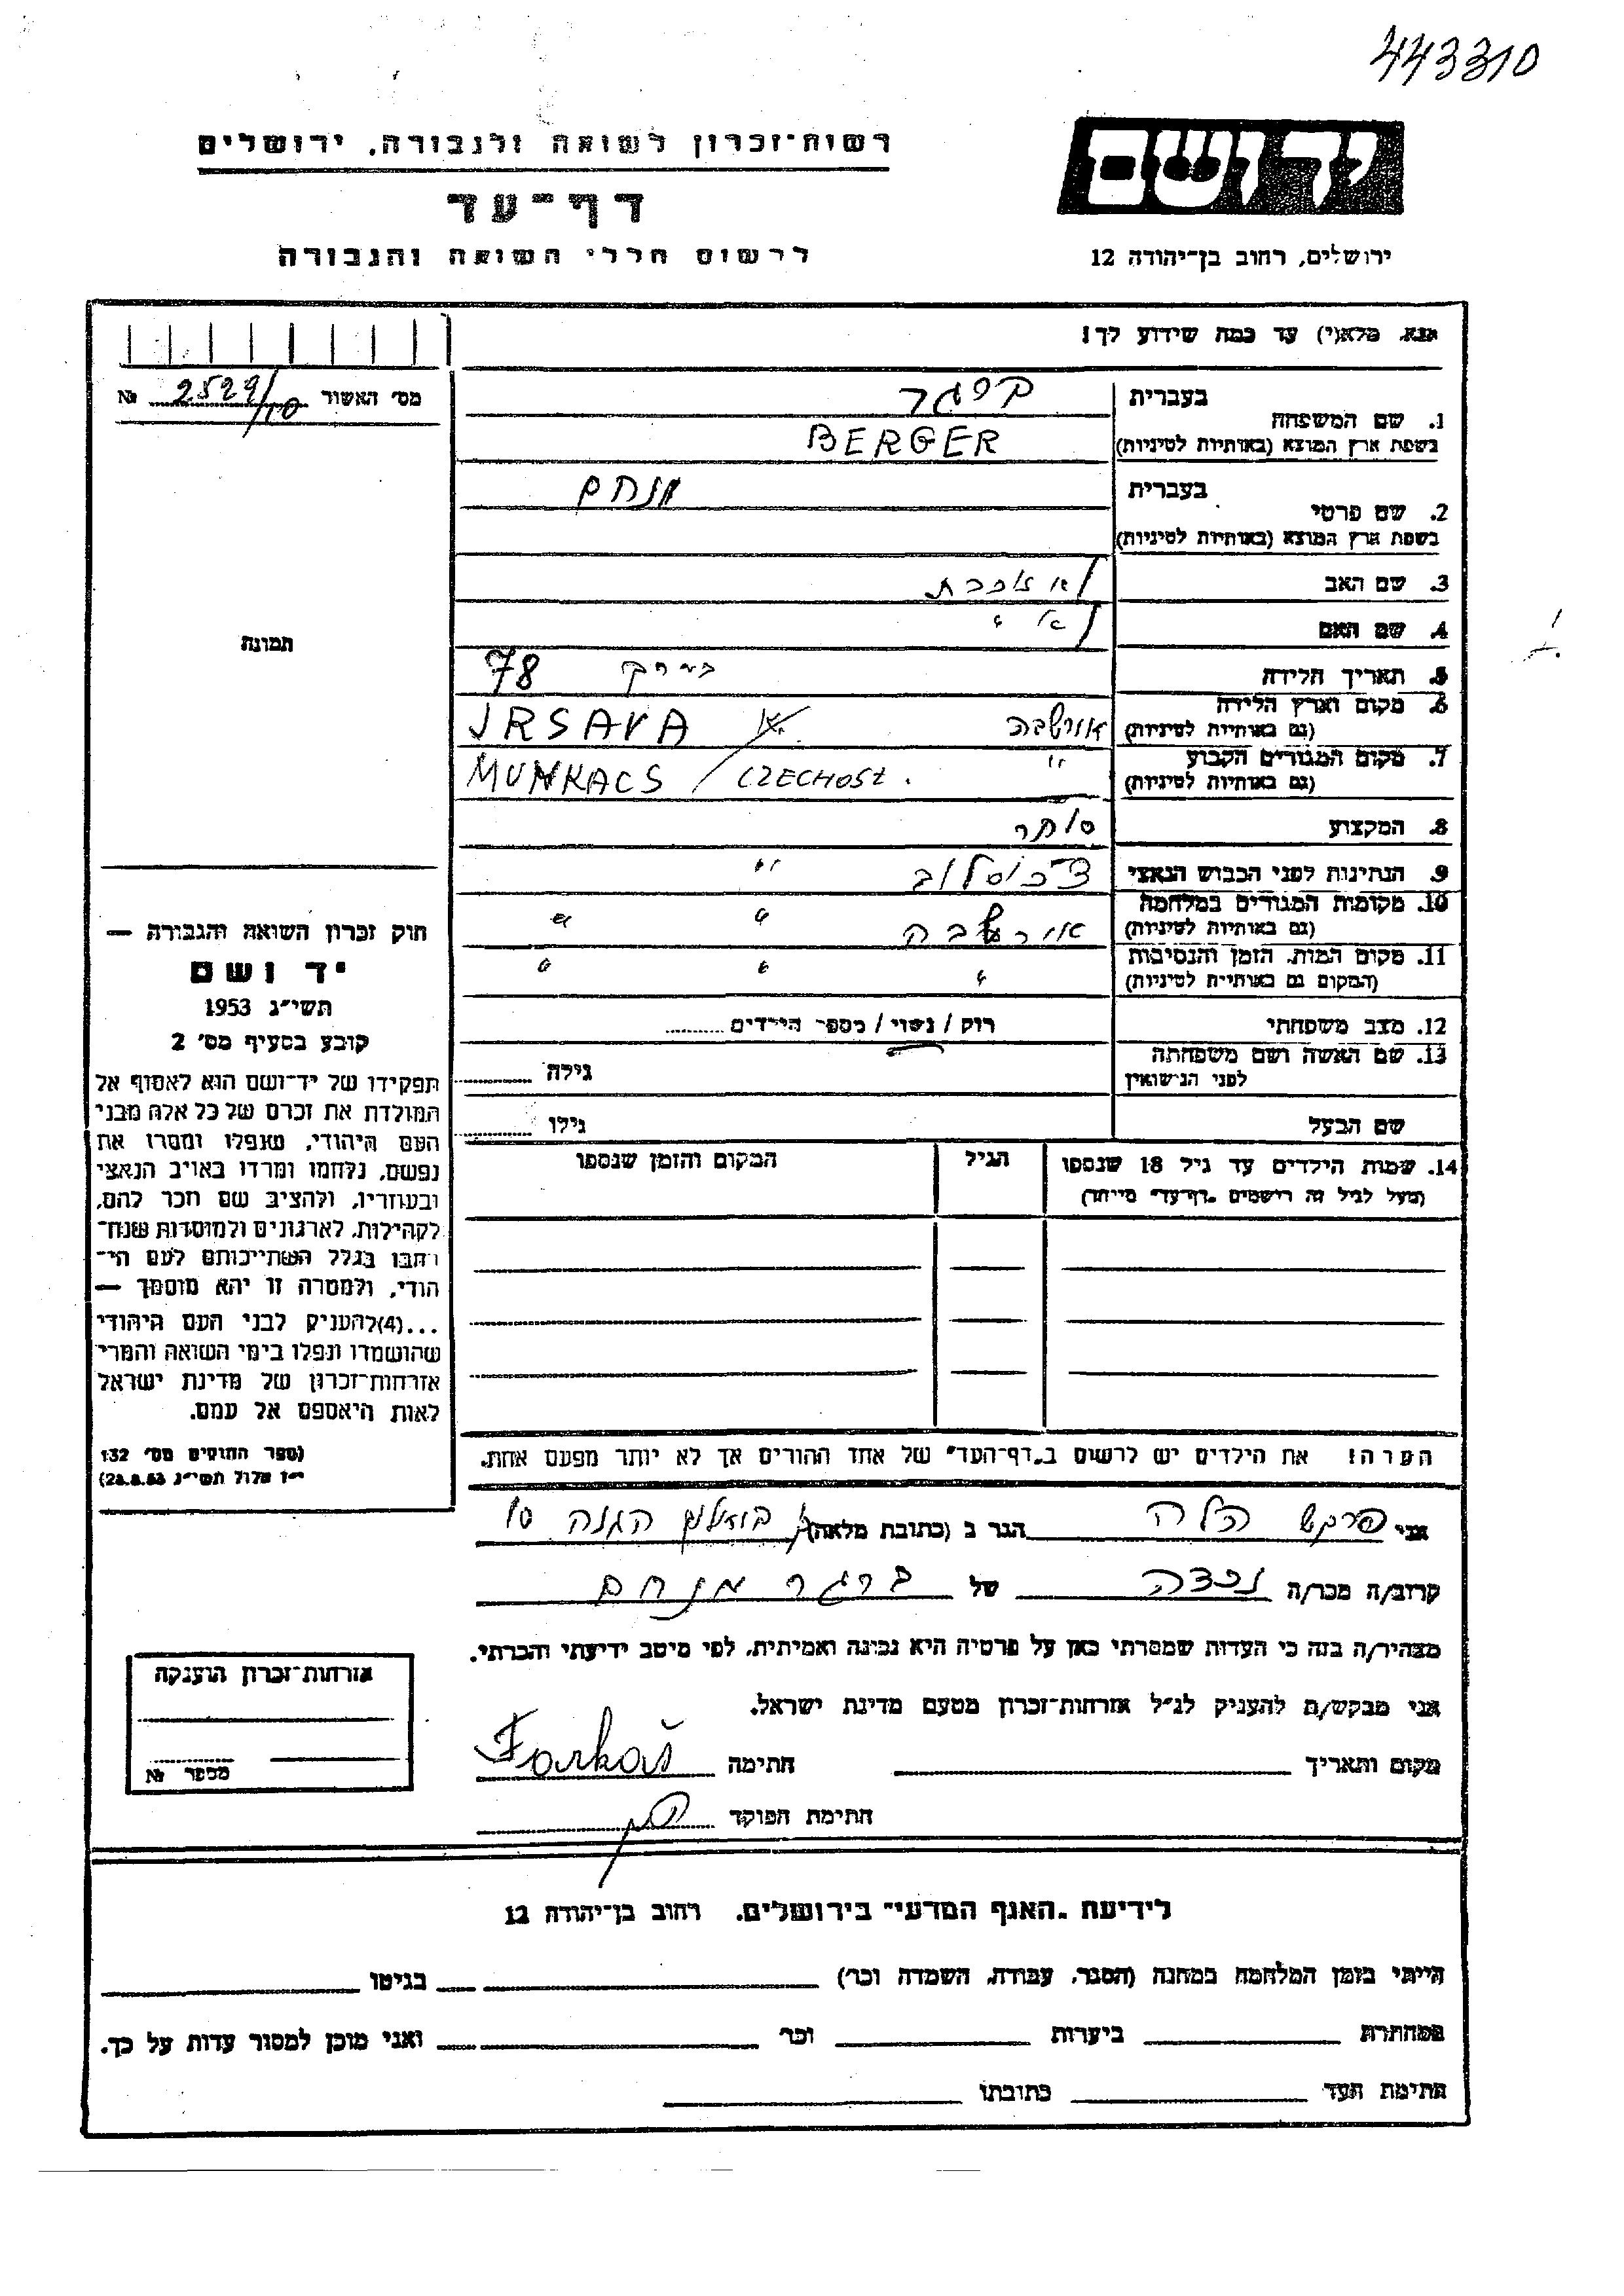 443310
יד ושם
רשות־זכרון לשואה ולגבורה, ירושלים
דף־עד
לרשום חללי השואה והגבורה
ירושלים, רחוב בן־יהודה 12
אנא, מלא(י) עד כמה שידוע לך!
מס׳ האשור 2529/10 №
1. שם המשפחה
בעברית ברגר
בשפת ארץ המוצא (באותיות לטיניות) BERGER
2. שם פרטי
בעברית מנחם
בשפת ארץ המוצא (באותיות לטיניות)
3. שם האב לא זוכרת
4. שם האם לא "
5. תאריך הלידה בערך 78
6. מקום וארץ הלידה אורשבה JRSAVA
(גם באותיות לטיניות)
7. מקום המגורים הקבוע " MUNKACS / CZECHOSL.
(גם באותיות לטיניות)
8. המקצוע סוחר
9. הנתינות לפני הכבוש הנאצי צ׳כוסלוב "
10. מקומות המגורים במלחמה אורשבה " "
(גם באותיות לטיניות)
11. מקום המות, הזמן והנסיבות " " "
(המקום גם באותיות לטיניות)
12. מצב משפחתי רוק / נשוי / מספר הילדים
13. שם האשה ושם משפחתה גילה
לפני הנישואין
שם הבעל גילו
14. שמות הילדים עד גיל 18 שנספו הגיל המקום והזמן שנספו
(מעל לגיל זה רושמים "דף־עד" מייחד)
תמונה
חוק זכרון השואה והגבורה —
יד ושם
תשי״ג 1953
קובע בסעיף מס׳ 2
תפקידו של יד־ושם הוא לאסוף אל
המולדת את זכרם של כל אלה מבני
העם היהודי, שנפלו ומסרו את
נפשם, נלחמו ומרדו באויב הנאצי
ובעוזריו, ולהציב שם וזכר להם,
לקהילות, לארגונים ולמוסדות שנח־
רבו בגלל השתייכותם לעם הי־
הודי, ולמטרה זו יהא מוסמך —
...(4)להעניק לבני העם היהודי
שהושמדו ונפלו בימי השואה והמרי
אזרחות־זכרון של מדינת ישראל
לאות היאספם אל עמם.
(ספר החוקים מס׳ 132
י״ז אלול תשי״ג 28.8.53)
הערה! את הילדים יש לרשום ב"דף־העד" של אחד ההורים אך לא יותר מפעם אחת.
אני פרקש הלה הגר ב (כתובת מלאה) הגנה 10
קרוב/ה מכר/ה נכדה של ברגר מנחם
מצהיר/ה בזה כי העדות שמסרתי כאן על פרטיה היא נכונה ואמיתית, לפי מיטב ידיעתי והכרתי.
אני מבקש/ת להעניק לנ״ל אזרחות־זכרון מטעם מדינת ישראל.
מקום ותאריך חתימה Farkaš
חתימת הפוקד
אזרחות־זכרון הוענקה
מספר №
לידיעת "האגף המדעי" בירושלים, רחוב בן־יהודה 12
הייתי בזמן המלחמה במחנה (הסגר, עבודה, השמדה וכו׳) בגיטו
במחתרת ביערות וכו׳ ואני מוכן למסור עדות על כך.
חתימת העד כתובתו